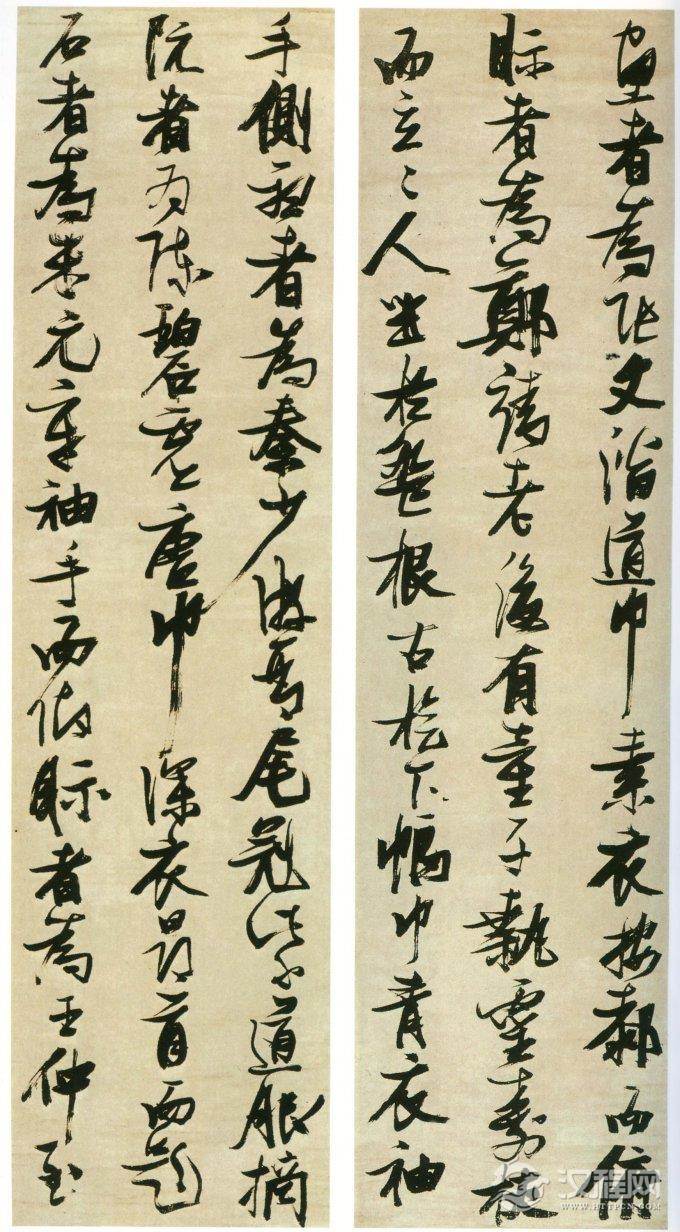 畫者為張文潛道巾素衣按膝而俯
眎者為鄭靖老後有童子執靈壽杖
而立二人坐於盤根古檜下幅巾青衣袖
手側聽者為秦少游琴尾冠紫道服摘
阮者為陳碧虛唐巾深衣昂首而題
石者為米元章袖手而仰眎者為王仲至
汉程网
WWW.HTTPCN.COM